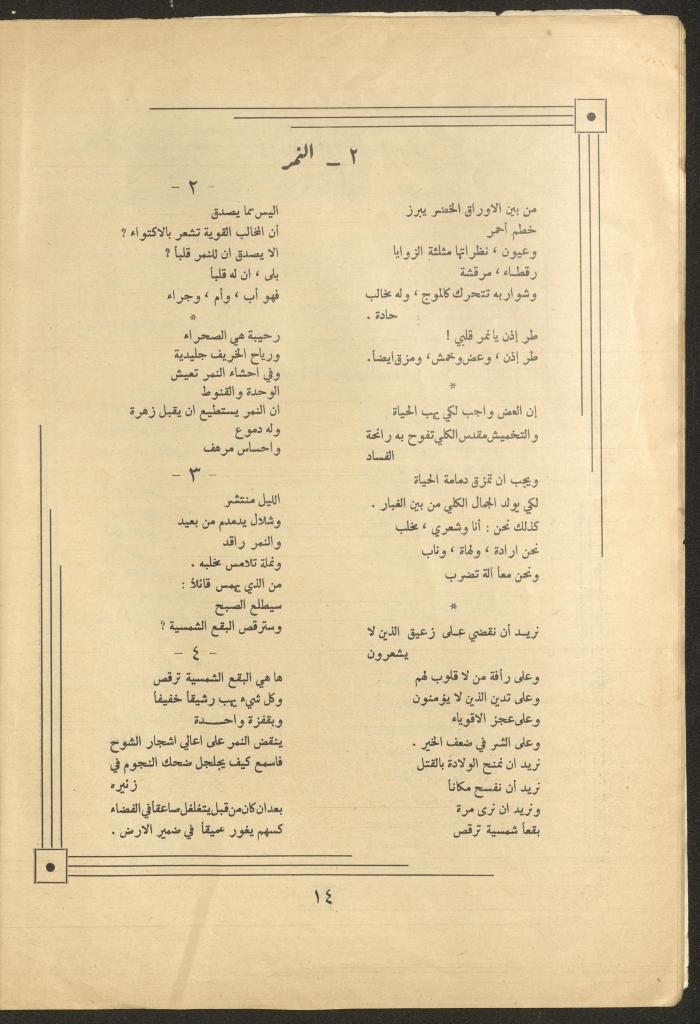 ٢ _ النمر
من بين الاوراق الخضر يبرز
خطم أحمر
وعيون ، نظراتها مثلثة الزوايا
رقطاء ، مرقشة
وشواربه تتحرك كالموج ، وله مخالب
حادة .
طر إذن يا نمر قلبي !
طر إذن ، وعض وخمش ، ومزق ايضاً .
*
إن العض واجب لكي يهب الحياة
والتخميش مقدس الكلي تفوح به رائحة
الفساد
ويجب ان تمزق دمامة الحياة
لكي يولد الجمال الكلي من بين الغبار .
كذلك نحن : أنا وشعري ، مخلب
نحن ارادة ، ولهاة ، وناب
ونحن معاً آلة تضرب
*
نريد أن نقضي على زعيق الذين لا
يشعرون
وعلى رأفة من لا قلوب لهم
وعلى تدين الذين لا يؤمنون
وعلى عجز الاقوياء
وعلى الشر في ضعف الخير .
نريد ان نمنح الولادة بالقتل
نريد أن نفسح مكاناً
ونريد ان نرى مرة
بقعاً شمسية ترقص
- ٢ -
اليس مما يصدق
أن المخالب القوية تشعر بالاكتواء ؟
الا يصدق ان للنمر قلباً ؟
بلى ، ان له قلباً
فهو أب ، وأم ، وجراء
*
رحيبة هي الصحراء
ورياح الخريف جليدية
وفي احشاء النمر تعيش
الوحدة والقنوط
ان النمر يستطيع ان يقبل زهرة
وله دموع
واحساس مرهف
- ٣ -
الليل منتشر
وشلال يدمدم من بعيد
والنمر راقد
ونملة تلامس مخلبه .
من الذي يهمس قائلاً :
سيطلع الصبح
وسترقص البقع الشمسية ؟
- ٤ -
ها هي البقع الشمسية ترقص
وكل شيء يهب رشيقاً خفيفاً
وبقفزة واحدة
ينقض النمر على اعالي اشجار الشوح
فاسمع كيف يجلجل ضحك النجوم في
زئيره
بعد ان كان من قبل يتغلغل صاعقاً في الفضاء
كسهم يغور عميقاً في ضمير الارض .
١٤